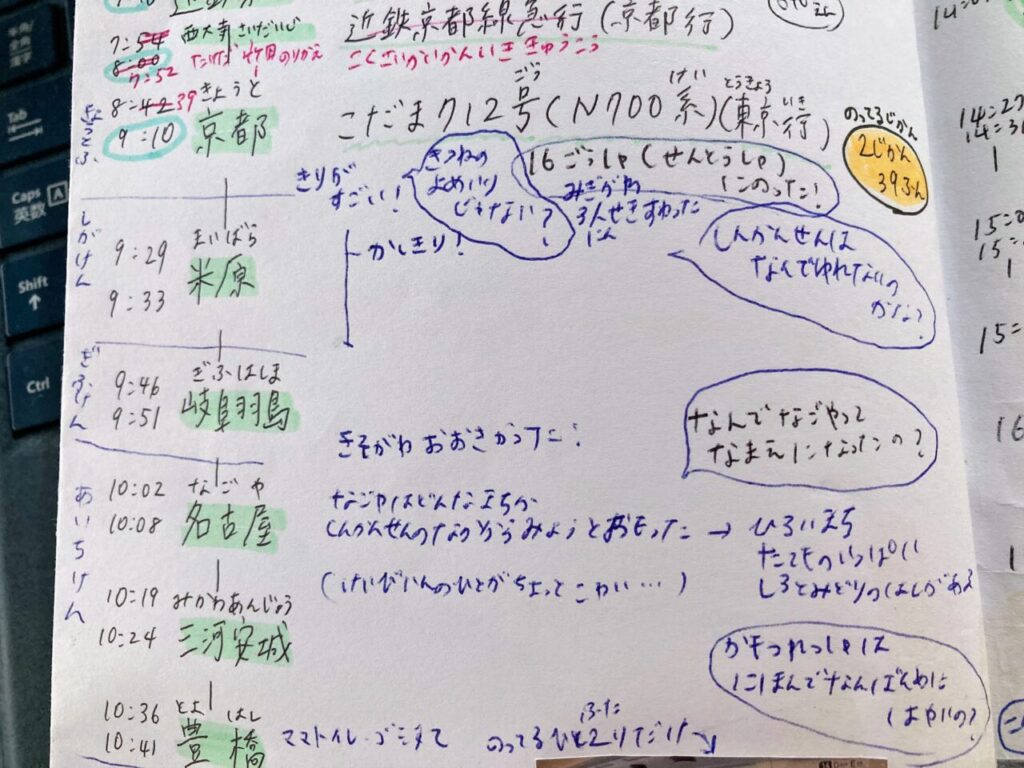 7:54 西大寺 さいだいじ 近鉄京都線急行(京都行)
8:00
7:52 のりかえ
8:42 39 きょうと
9:10 京都 こだま712号(N700系)(東京行)
ごう けい とうきょう いき
のってるじかん
2じかん
39ふん
16ごうしゃ(せんとうしゃ)
にのった!
きりが
すごい!
きつねの
よめいり
じゃない?
みぎがわ
3人せきすわった
にん
かしきり!
しんかんせんは
なんでゆれないの
かな?
しがけん
9:29 まいばら
9:33 米原
ぎふけん
9:46 ぎふはしま
9:51 岐阜羽島
きそがわ おおきかった!
なんでなごやって
なまえになったの?
あいちけん
10:02 なごや
10:08 名古屋
なごやはどんなまちか
しんかんせんのなかからみようとおもった → ひろいまち
たてものいっぱい
しろとみどりのはしがある
(けいびいんのひとがちょっとこわい…)
10:19 みかわあんじょう
10:24 三河安城
かもつれっしゃは
にほんでなんばんめに
はやいの?
10:36 とよはし
10:41 豊橋 ママトイレ・ゴミすて のってるひと2りだけ
ふた
Tab
Caps
英数
A
Shift
Ctrl